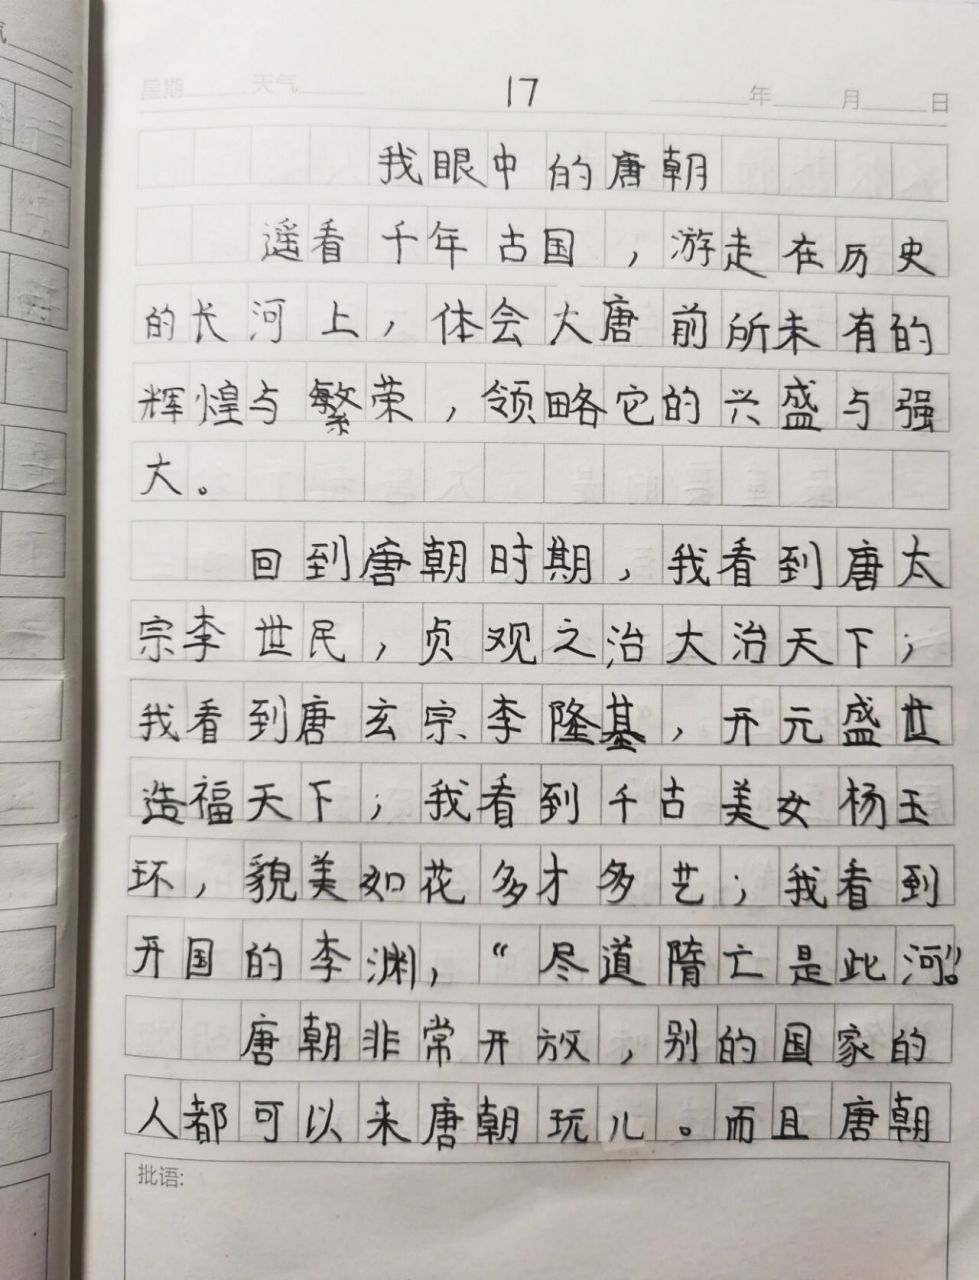 星期 天气 17 年 月 日
我眼中的唐朝
遥看千年古国，游走在历史
的长河上，体会大唐前所未有的
辉煌与繁荣，领略它的兴盛与强
大。
回到唐朝时期，我看到唐太
宗李世民，贞观之治大治天下；
我看到唐玄宗李隆基，开元盛世
造福天下；我看到千古美女杨玉
环，貌美如花多才多艺；我看到
开国的李渊，“尽道隋亡是此河”。
唐朝非常开放，别的国家的
人都可以来唐朝玩儿。而且唐朝
批语: